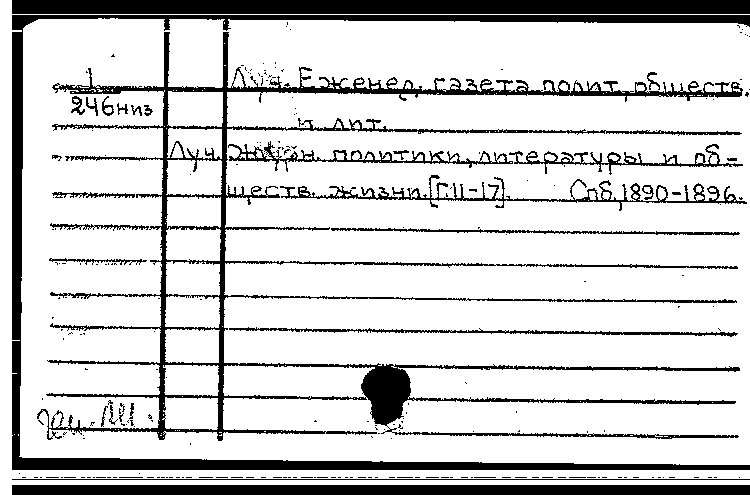 1
246низ
Луч. Еженед. газета полит., обществ.
и лит.
Луч. Журн. политики, литературы и об-
ществ. жизни. [Г.11-17]. Спб, 1890-1896.